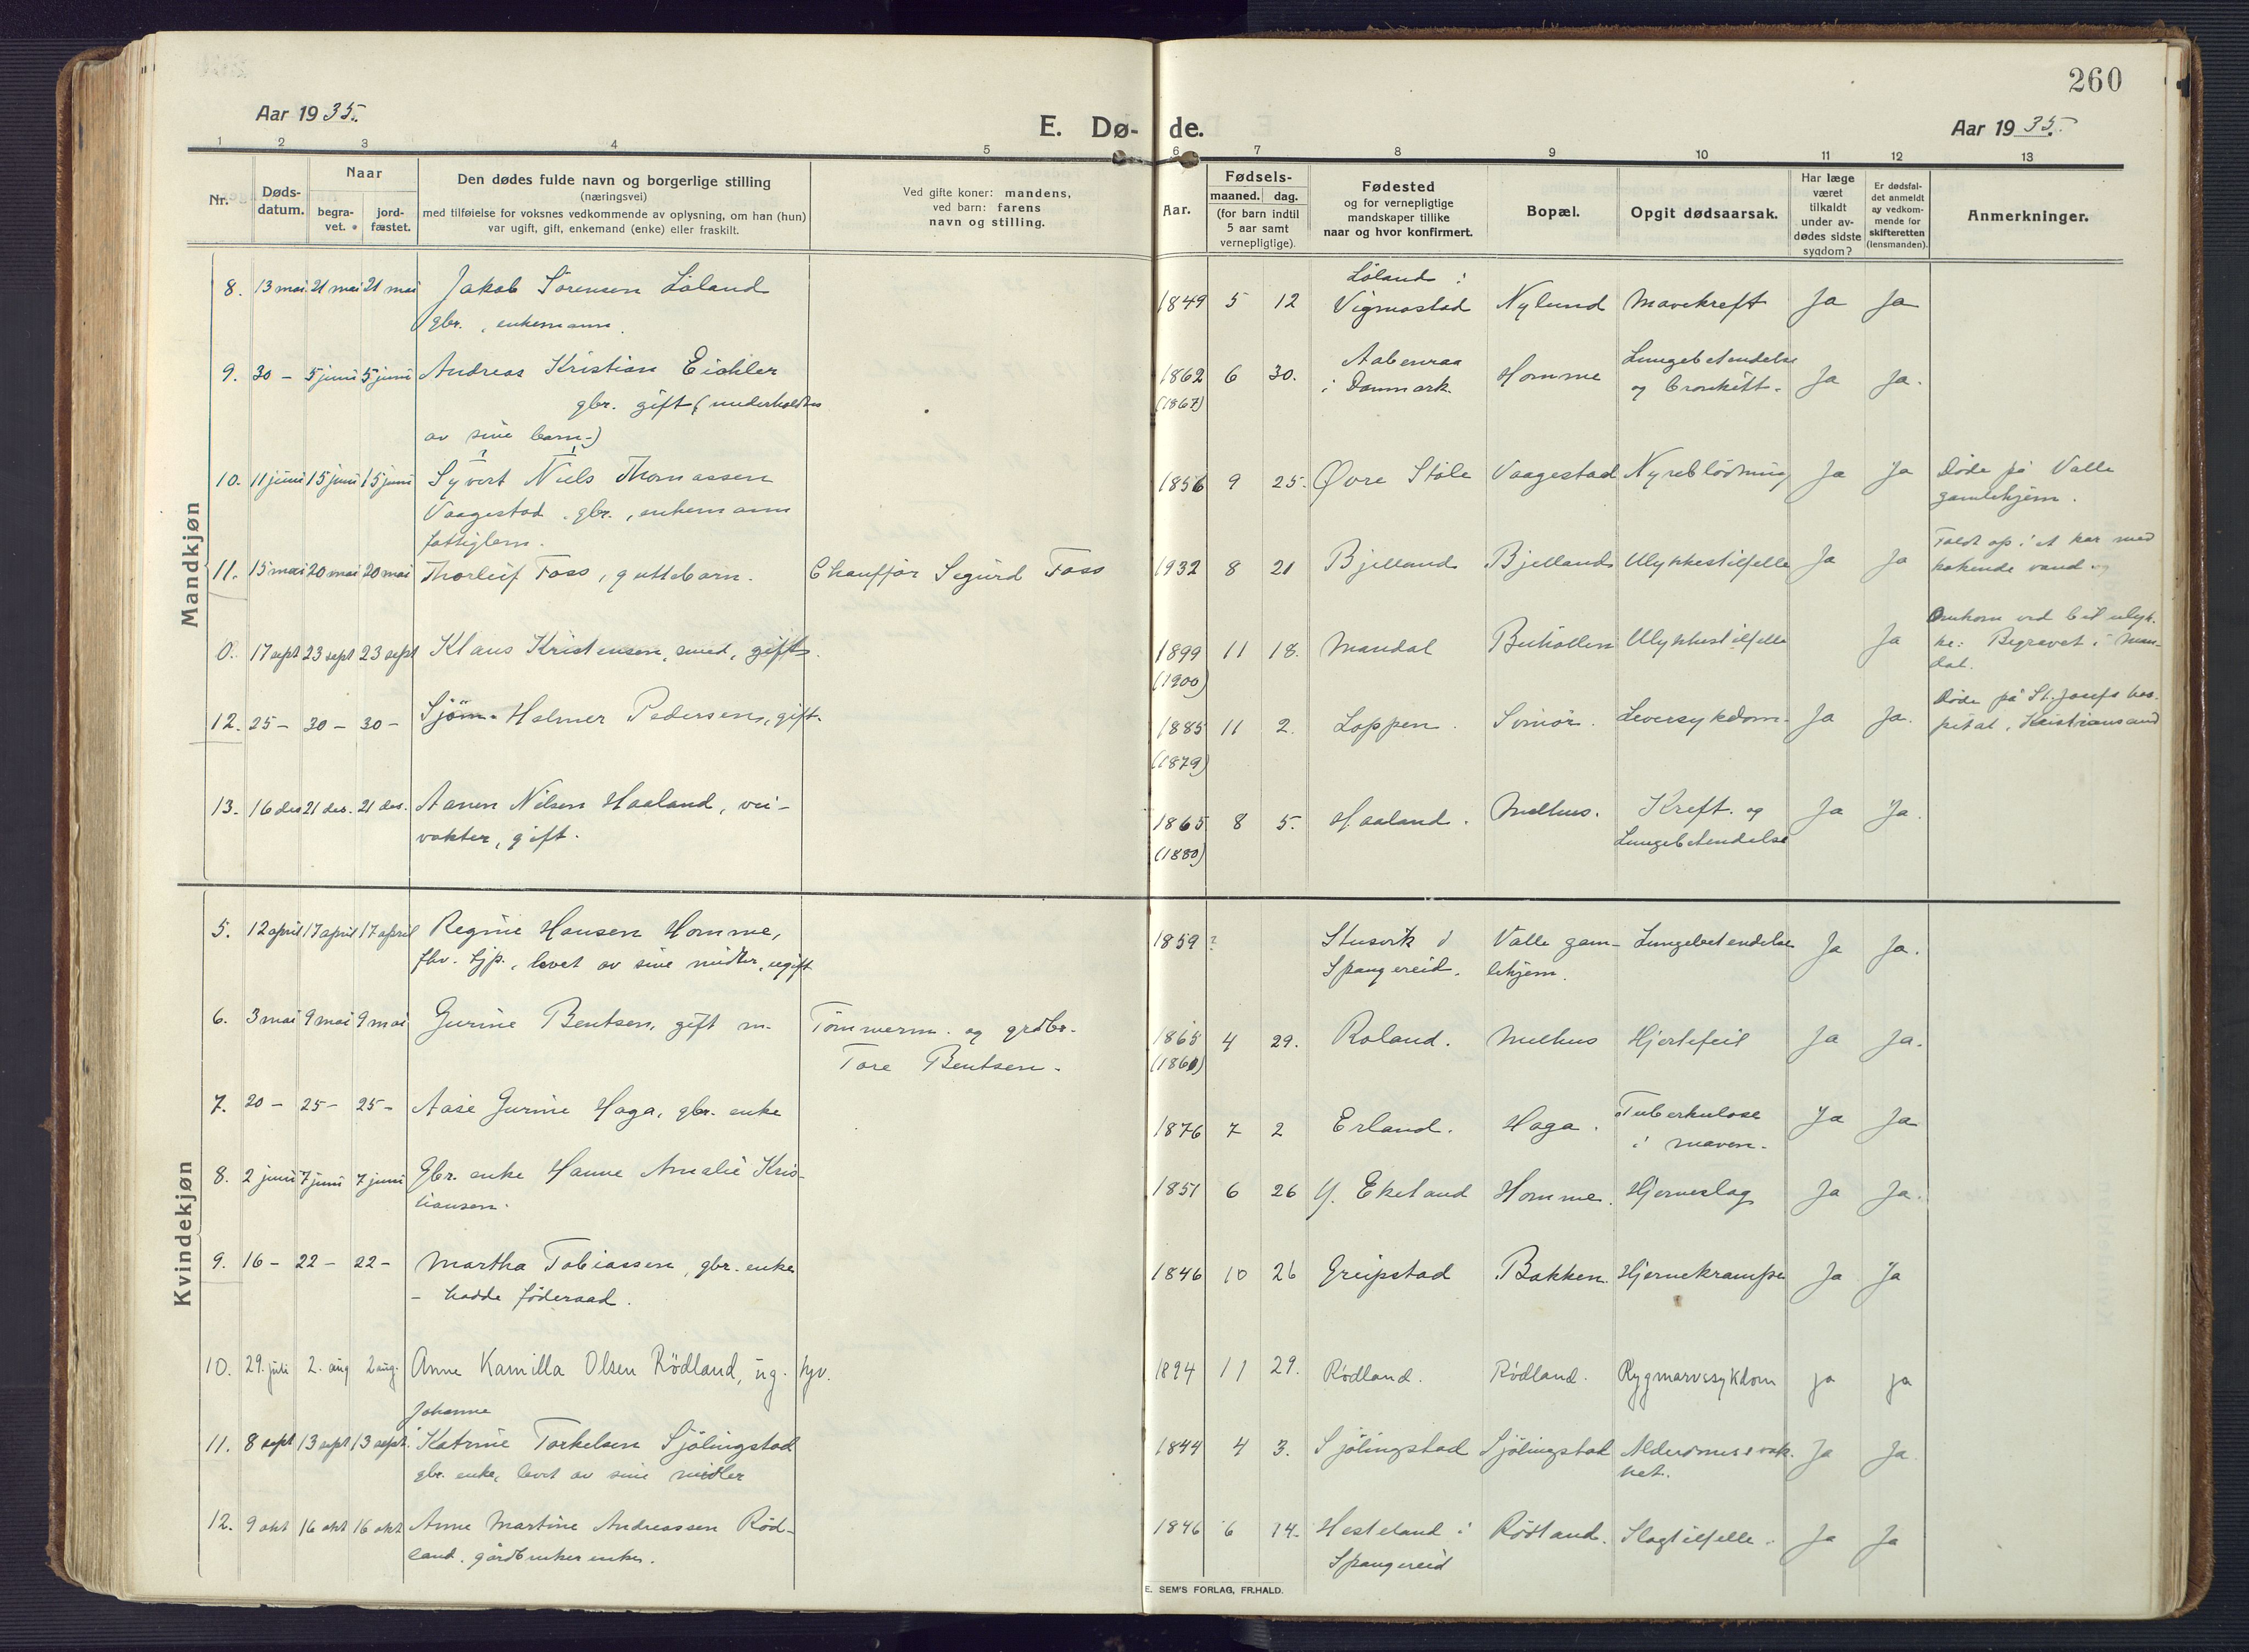 260
Aar 1935.
E. Dø-
de.
Aar 1935.
1 2 3 4 5 6 7 8 9 10 11 12 13
Nr.
Døds-
datum.
Naar
begra-
vet.
jord-
fæstet.
Den dødes fulde navn og borgerlige stilling
(næringsvei)
med tilføielse for voksnes vedkommende av oplysning, om han (hun)
var ugift, gift, enkemand (enke) eller fraskilt.
Ved gifte koner: mandens,
ved barn: farens
navn og stilling.
Aar.
Fødsels-
maaned. dag.
(for barn indtil
5 aar samt
vernepligtige).
Fødested
og for vernepligtige
mandskaper tillike
naar og hvor konfirmert.
Bopæl.
Opgit dødsaarsak.
Har læge
været
tilkaldt
under av-
dødes sidste
sygdom?
Er dødsfal-
det anmeldt
av vedkom-
mende for
skifteretten
(lensmanden).
Anmerkninger.
Mandkjøn
8. 13 mai 21 mai 21 mai Jakob Sørensen Löland 1849 5 12 Löland i
gbr., enkemann. Vigmostad Nylund Mavekreft Ja Ja
9. 30 - 5 juni 5 juni Andreas Kristian Eichler 1862 6 30. Aabenraa Homme Lungebetendelse Ja Ja.
gbr. gift (underholdtes (1867) i Danmark. og bronkitt.
av sine barn-)
10. 11 juni 15 juni 15 juni Syvert Niels Thomassen 1856 9 25. Øvre Støle Vaagestad Nyreblödning Ja Ja Döde på Valle
Vaagestad. gbr., enkemann gamlehjem.
fattiglem.
11. 15 mai 20 mai 20 mai Thorleif Foss, guttebarn. Chauffør Sigurd Foss 1932 8 21 Bjelland Bjelland Ulykkestilfelle Ja Ja Faldt op i et kar med
kokende vand.
0. 17 sept 23 sept 23 sept Klaus Kristensen, smed, gift. 1899 11 18. Mandal Buhollen Ulykkestilfelle Ja Omkom ved bilulyk-
(1900) ke: Begravet i Man-
dal.
12. 25 - 30 - 30 - Sjöm. Helmer Pedersen, gift. 1885 11 2. Loppen. Svinör. Leversykdom. Ja Ja. Döde på St. Josefs hos-
(1879) pital, Kristiansand
13. 16 des 21 des. 21 des. Aanen Nilsen Haaland, vei- 1865 8 5. Haaland. Melhus. Kreft. og Ja Ja.
vokter, gift. (1880) Lungebetendelse
Kvindekjøn
5. 12 april 17 april 17 april Regine Hansen Homme, 1859? Stusvik i Valle gam- Lungebetendelse Ja Ja.
fhv. tjp., levet av sine midler, ugift Spangereid. lehjem.
6. 3 mai 9 mai 9 mai Gurine Bentsen, gift m. Tömmerm. og grdbr. 1865 4 29. Roland. Melhus Hjertefeil Ja Ja.
Tore Bentsen. (1860)
7. 20 - 25 - 25 - Aase Gurine Haga, gbr. enke 1876 7 2 Erland. Haga. Tuberkulose Ja Ja
i maven.
8. 2 juni 7 juni 7 juni Gbr. enke Hanne Amalie Kris- 1851 6 26 Y. Eikeland Homme. Hjerneslag Ja Ja.
tiansen.
9. 16 - 22 - 22 - Martha Tobiassen, gbr. enke 1846 10 26 Greipstad Bakken. Hjernekrampe Ja Ja
- hadde föderaad.
10. 29. juli 2. aug 2 aug. Anne Kamilla Olsen Rödland, ug. hjv. 1894 11 29. Rödland. Rödland. Rygmarvssykdom ja ja
Johanne
11. 8 sept 13 sept 13 sept. Katrine Torkelsen Sjölingstad 1844 4 3. Sjölingstad Sjölingstad Alderdomssvak- Ja Ja
gbr. enke, levet av sine midler het.
12. 9 okt 16 okt 16 okt Anne Martine Andreassen Röd- 1846 6 14. Hesteland i Rödland. Slagtilfelle. Ja Ja
land. gårdbrukerenke. Spangereid
E. SEM'S FORLAG, FR.HALD.